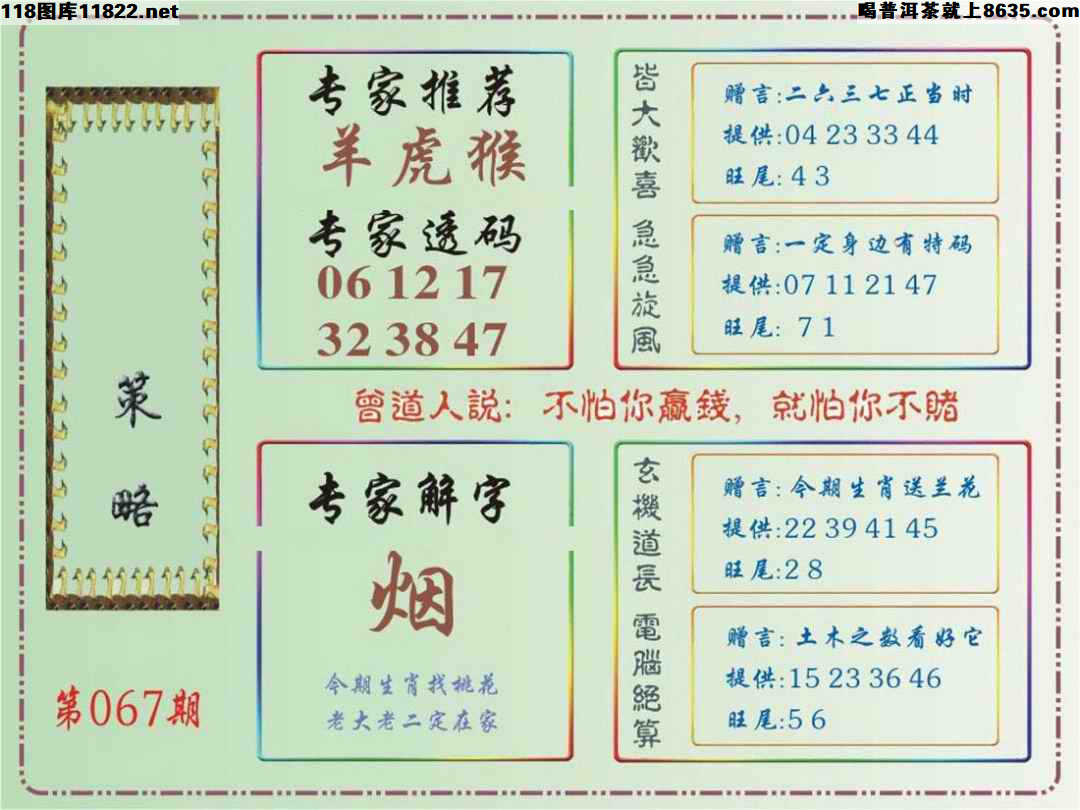 118图库11822.net
喝普洱茶就上8635.com
策略
第067期
专家推荐
羊虎猴
专家透码
06 12 17
32 38 47
皆大歡喜
赠言:二六三七正当时
提供:04 23 33 44
旺尾: 4 3
急急旋風
赠言:一定身边有特码
提供:07 11 21 47
旺尾: 7 1
曾道人説: 不怕你赢錢, 就怕你不賭
专家解字
烟
今期生肖找桃花
老大老二定在家
玄機道長
赠言: 今期生肖送兰花
提供:22 39 41 45
旺尾:2 8
電腦絕算
赠言: 土木之数看好它
提供:15 23 36 46
旺尾:5 6